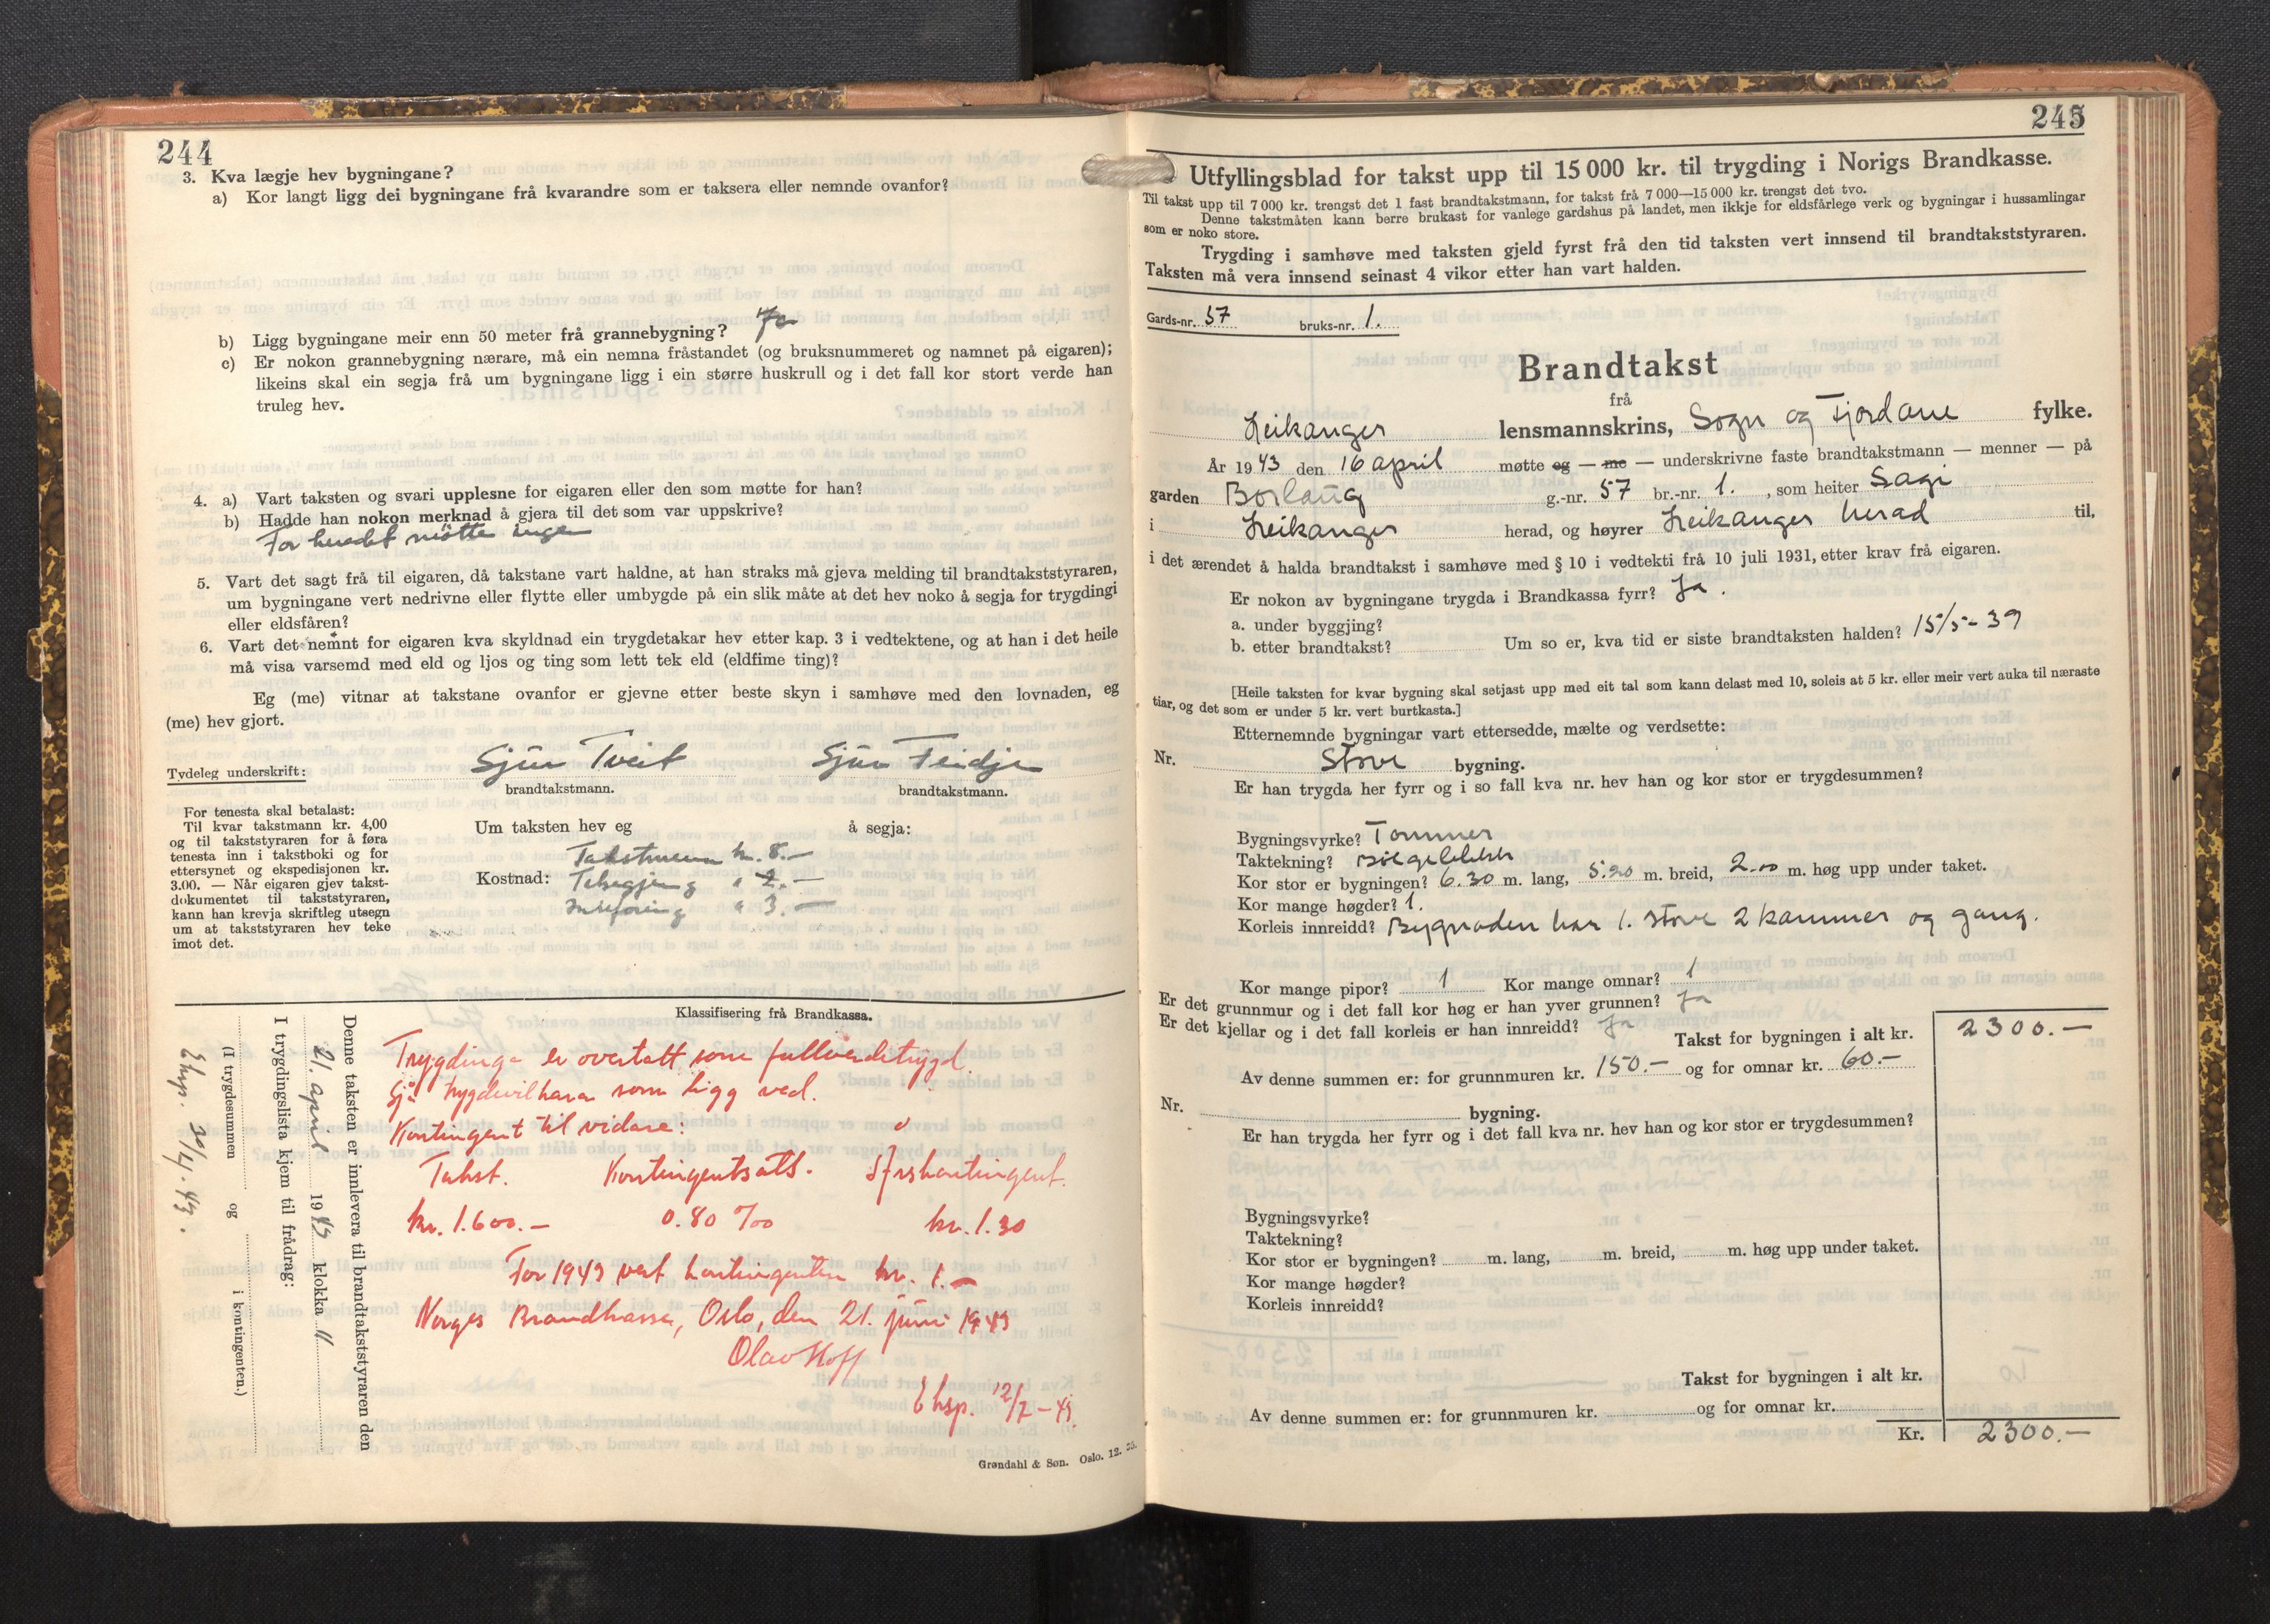 244
3. Kva lægje hev bygningane?
a) Kor langt ligg dei bygningane frå kvarandre som er taksera eller nemnde ovanfor?
b) Ligg bygningane meir enn 50 meter frå grannebygning? Ja
c) Er nokon grannebygning nærare, må ein nemna fråstandet (og bruksnummeret og namnet på eigaren);
likeins skal ein segja frå um bygningane ligg i ein større huskrull og i det fall kor stort verde han
truleg hev.
4. a) Vart taksten og svari upplesne for eigaren eller den som møtte for han?
b) Hadde han nokon merknad å gjera til det som var uppskrive?
For heradet møtte ingen
5. Vart det sagt frå til eigaren, då takstane vart haldne, at han straks må gjeva melding til brandtakststyraren,
um bygningane vert nedrivne eller flytte eller umbygde på ein slik måte at det hev noko å segja for trygdingi
eller eldsfåren?
6. Vart det nemnt for eigaren kva skyldnad ein trygdetakar hev etter kap. 3 i vedtektene, og at han i det heile
må visa varsemd med eld og ljos og ting som lett tek eld (eldfime ting)?
Eg (me) vitnar at takstane ovanfor er gjevne etter beste skyn i samhøve med den lovnaden, eg
(me) hev gjort.
Tydeleg underskrift: Sjur Tveit Sjur Feidje
brandtakstmann. brandtakstmann.
For tenesta skal betalast:
Til kvar takstmann kr. 4,00
og til takststyraren for å føra
tenesta inn i takstboki og for
ettersynet og ekspedisjonen kr.
3.00. — Når eigaren gjev takst-
dokumentet til takststyraren,
kann han krevja skriftleg utsegn
um at takststyraren hev teke
imot det.
Um taksten hev eg å segja:
Takstmenn kr. 8.—
Kostnad: Tilsegjing " 2.—
Innføring " 3.—
Klassifisering frå Brandkassa.
Trygdinga er overtatt som fullverdetrygd.
Sjå trygdevilkåra som ligg ved.
Kontingent til vidare:
Takst. Kontingentsats. Årskontingent.
kr. 1.600.— 0.80 ‰ kr. 1.30
For 1943 vert kontingenten kr. 1.—
Norges Brandkasse, Oslo, den 21. juni 1943
Olav Hoff
Eksp. 12/7 - 43.
Denne taksten er innlevera til brandtakststyraren den
21. april 1943 klokka 11
I trygdingslista kjem til frådrag:
(I trygdesummen og i kontingenten.)
Eksp. 30/4. 43.
Grøndahl & Søn. Oslo. 12.
245
Utfyllingsblad for takst upp til 15 000 kr. til trygding i Norigs Brandkasse.
Til takst upp til 7 000 kr. trengst det 1 fast brandtakstmann, for takst frå 7 000—15 000 kr. trengst det tvo.
Denne takstmåten kann berre brukast for vanlege gardshus på landet, men ikkje for eldsfårlege verk og bygningar i hussamlingar
som er noko store.
Trygding i samhøve med taksten gjeld fyrst frå den tid taksten vert innsend til brandtakststyraren.
Taksten må vera innsend seinast 4 vikor etter han vart halden.
Gards-nr. 57 bruks-nr. 1.
Brandtakst
frå
Leikanger lensmannskrins, Sogn og Fjordane fylke.
År 1943 den 16 april møtte eg — me — underskrivne faste brandtakstmann — menner — på
garden Borlaug g.-nr. 57 br.-nr. 1. , som heiter Sagi
i Leikanger herad, og høyrer Leikanger herad til,
i det ærendet å halda brandtakst i samhøve med § 10 i vedtekti frå 10 juli 1931, etter krav frå eigaren.
Er nokon av bygningane trygda i Brandkassa fyrr? Ja.
a. under byggjing?
b. etter brandtakst? Um so er, kva tid er siste brandtaksten halden? 15/5-39
[Heile taksten for kvar bygning skal setjast upp med eit tal som kann delast med 10, soleis at 5 kr. eller meir vert auka til næraste
tiar, og det som er under 5 kr. vert burtkasta.]
Etternemnde bygningar vart ettersedde, mælte og verdsette:
Nr. Stove bygning.
Er han trygda her fyrr og i so fall kva nr. hev han og kor stor er trygdesummen?
Bygningsvyrke? Tømmer
Taktekning? Bølgeblekk
Kor stor er bygningen? 6.30 m. lang, 5.20 m. breid, 2.00 m. høg upp under taket.
Kor mange høgder? 1.
Korleis innreidd? Bygnaden har 1. stove 2 kammer og gang.
Kor mange pipor? 1 Kor mange omnar? 1
Er det grunnmur og i det fall kor høg er han yver grunnen? Ja
Er det kjellar og i det fall korleis er han innreidd? Ja
Takst for bygningen i alt kr. 2300.—
Av denne summen er: for grunnmuren kr. 150.— og for omnar kr. 60.—
Nr. bygning.
Er han trygda her fyrr og i det fall kva nr. hev han og kor stor er trygdesummen?
Bygningsvyrke?
Taktekning?
Kor stor er bygningen? m. lang, m. breid, m. høg upp under taket.
Kor mange høgder?
Korleis innreidd?
Takst for bygningen i alt kr.
Av denne summen er: for grunnmuren kr. og for omnar kr.
Kr. 2300.—